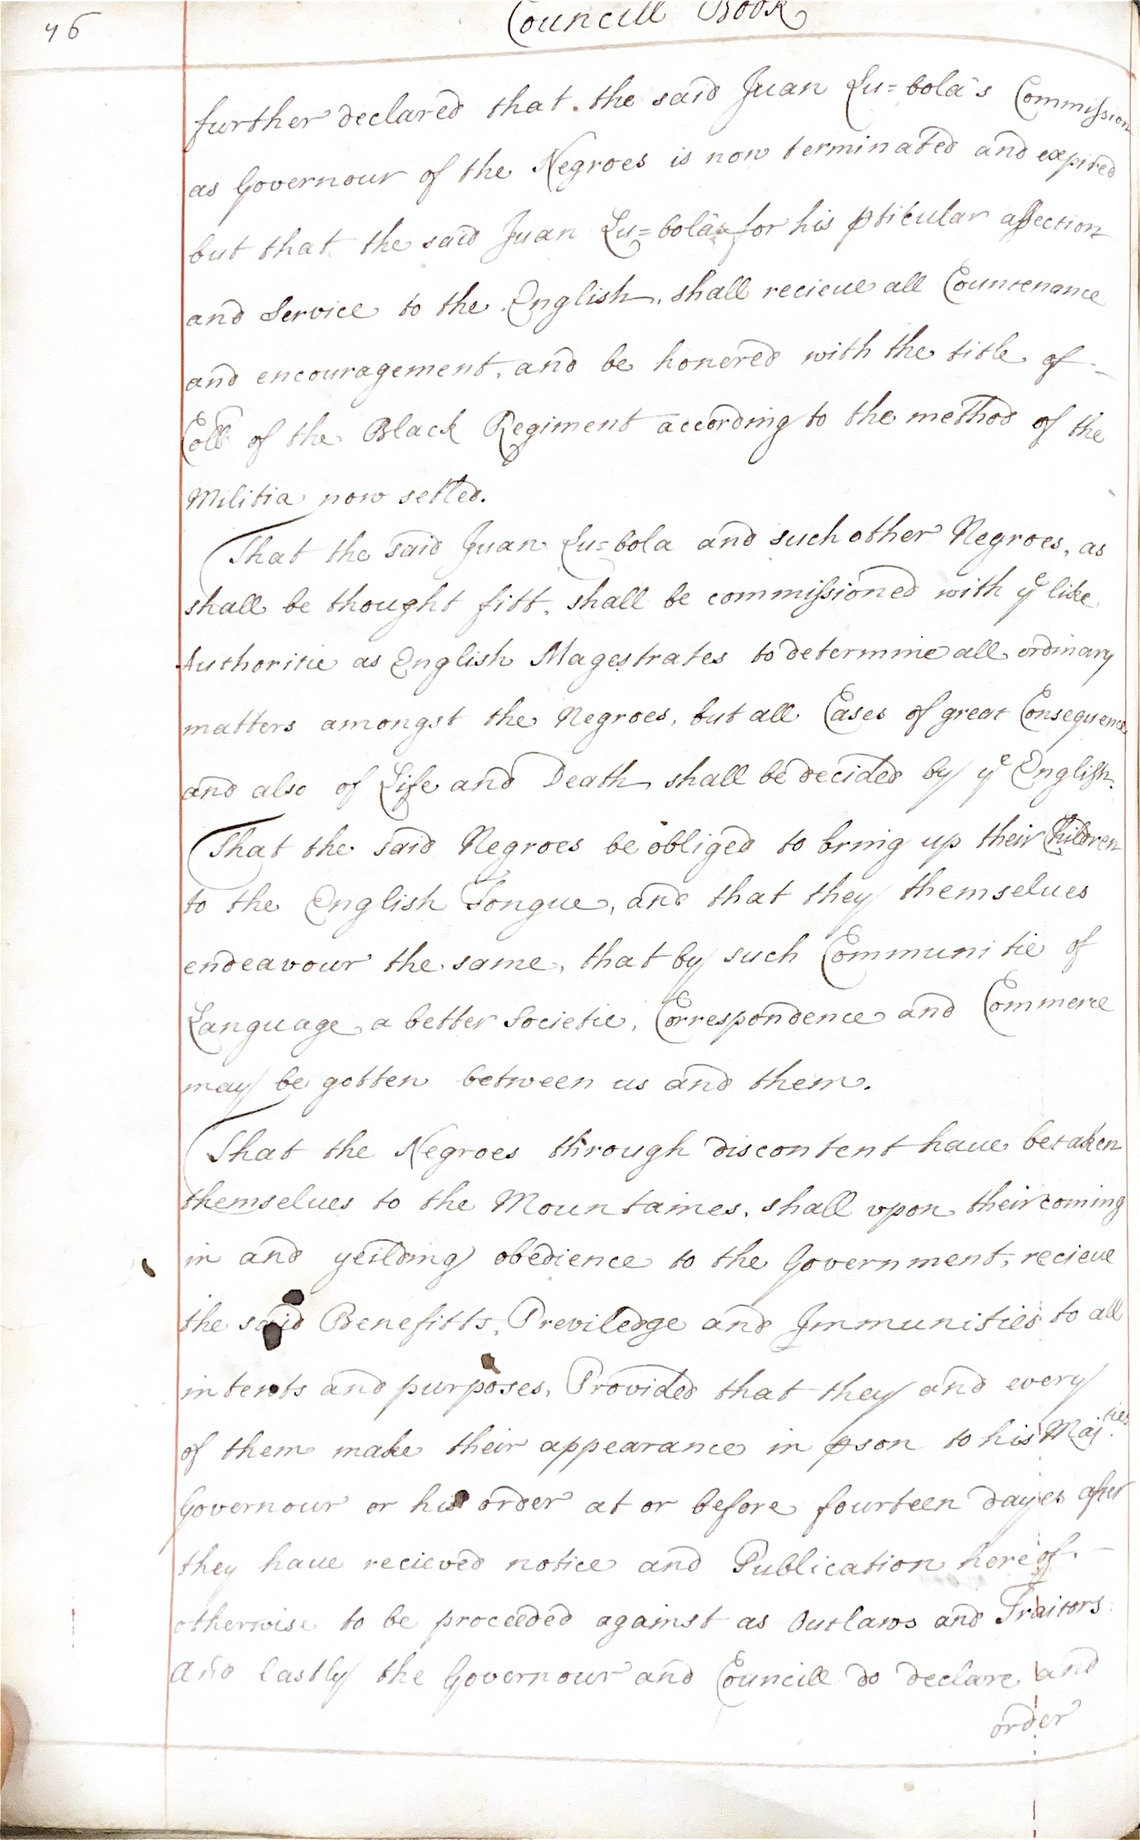 76
Councill Book
further declared that the said Juan Lu=bola's Commission
as Governour of the Negroes is now terminated and expired
but that the said Juan Lu=bola for his pticular affection
and Service to the English, shall recieve all Countenance
and encouragement, and be honered with the title of
Coll of the Black Regiment according to the method of the
Militia now setled.
That the said Juan Lu=bola and such other Negroes, as
shall be thought fitt, shall be commissioned with ye like
Authoritie as English Magestrates to determine all ordinary
matters amongst the Negroes, but all Cases of great Consequence
and also of Life and Death shall be decided by ye English.
That the said Negroes be obliged to bring up their Children
to the English Tongue, and that they themselues
endeavour the same, that by such Communitie of
Language a better Societie, Correspondence and Commerce
may be gotten between us and them.
That the Negroes through discontent haue betaken
themselues to the Mountaines, shall vpon their coming
in and yeilding obedience to the Government, recieue
the said Benefitts, Previledge and Immunities to all
intents and purposes, Provided that they and every
of them make their appearance in pson to his Maj.ties
Governour or his order at or before fourteen dayes after
they haue recieved notice and Publication hereof
otherwise to be proceeded against as Outlaws and Traitors.
And lastly the Governour and Councill do declare and
order